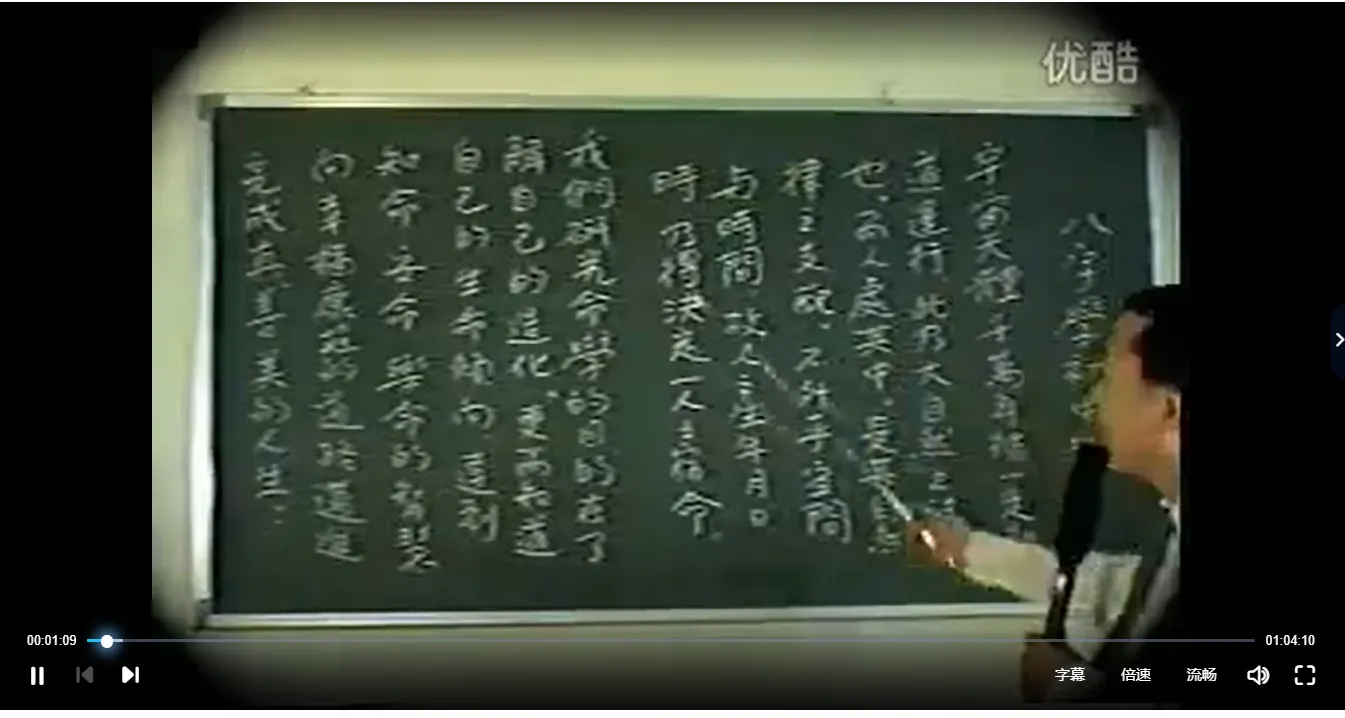 优酷
八字學
宇宙天體千萬年
道運行 此乃大自然之
也、而人處其中、受其自然
擇之支配、不外乎空間
与時間、故人之生年月日
時乃得決定一人之宿命。
我們研究命學的目的在了
解自己的造化、更而知道
自己的生命傾向 達到
知命 安命 學命的智慧
向幸福康莊的道路邁進
完成真善美的人生.
00:01:09
01:04:10
字幕 倍速 流畅